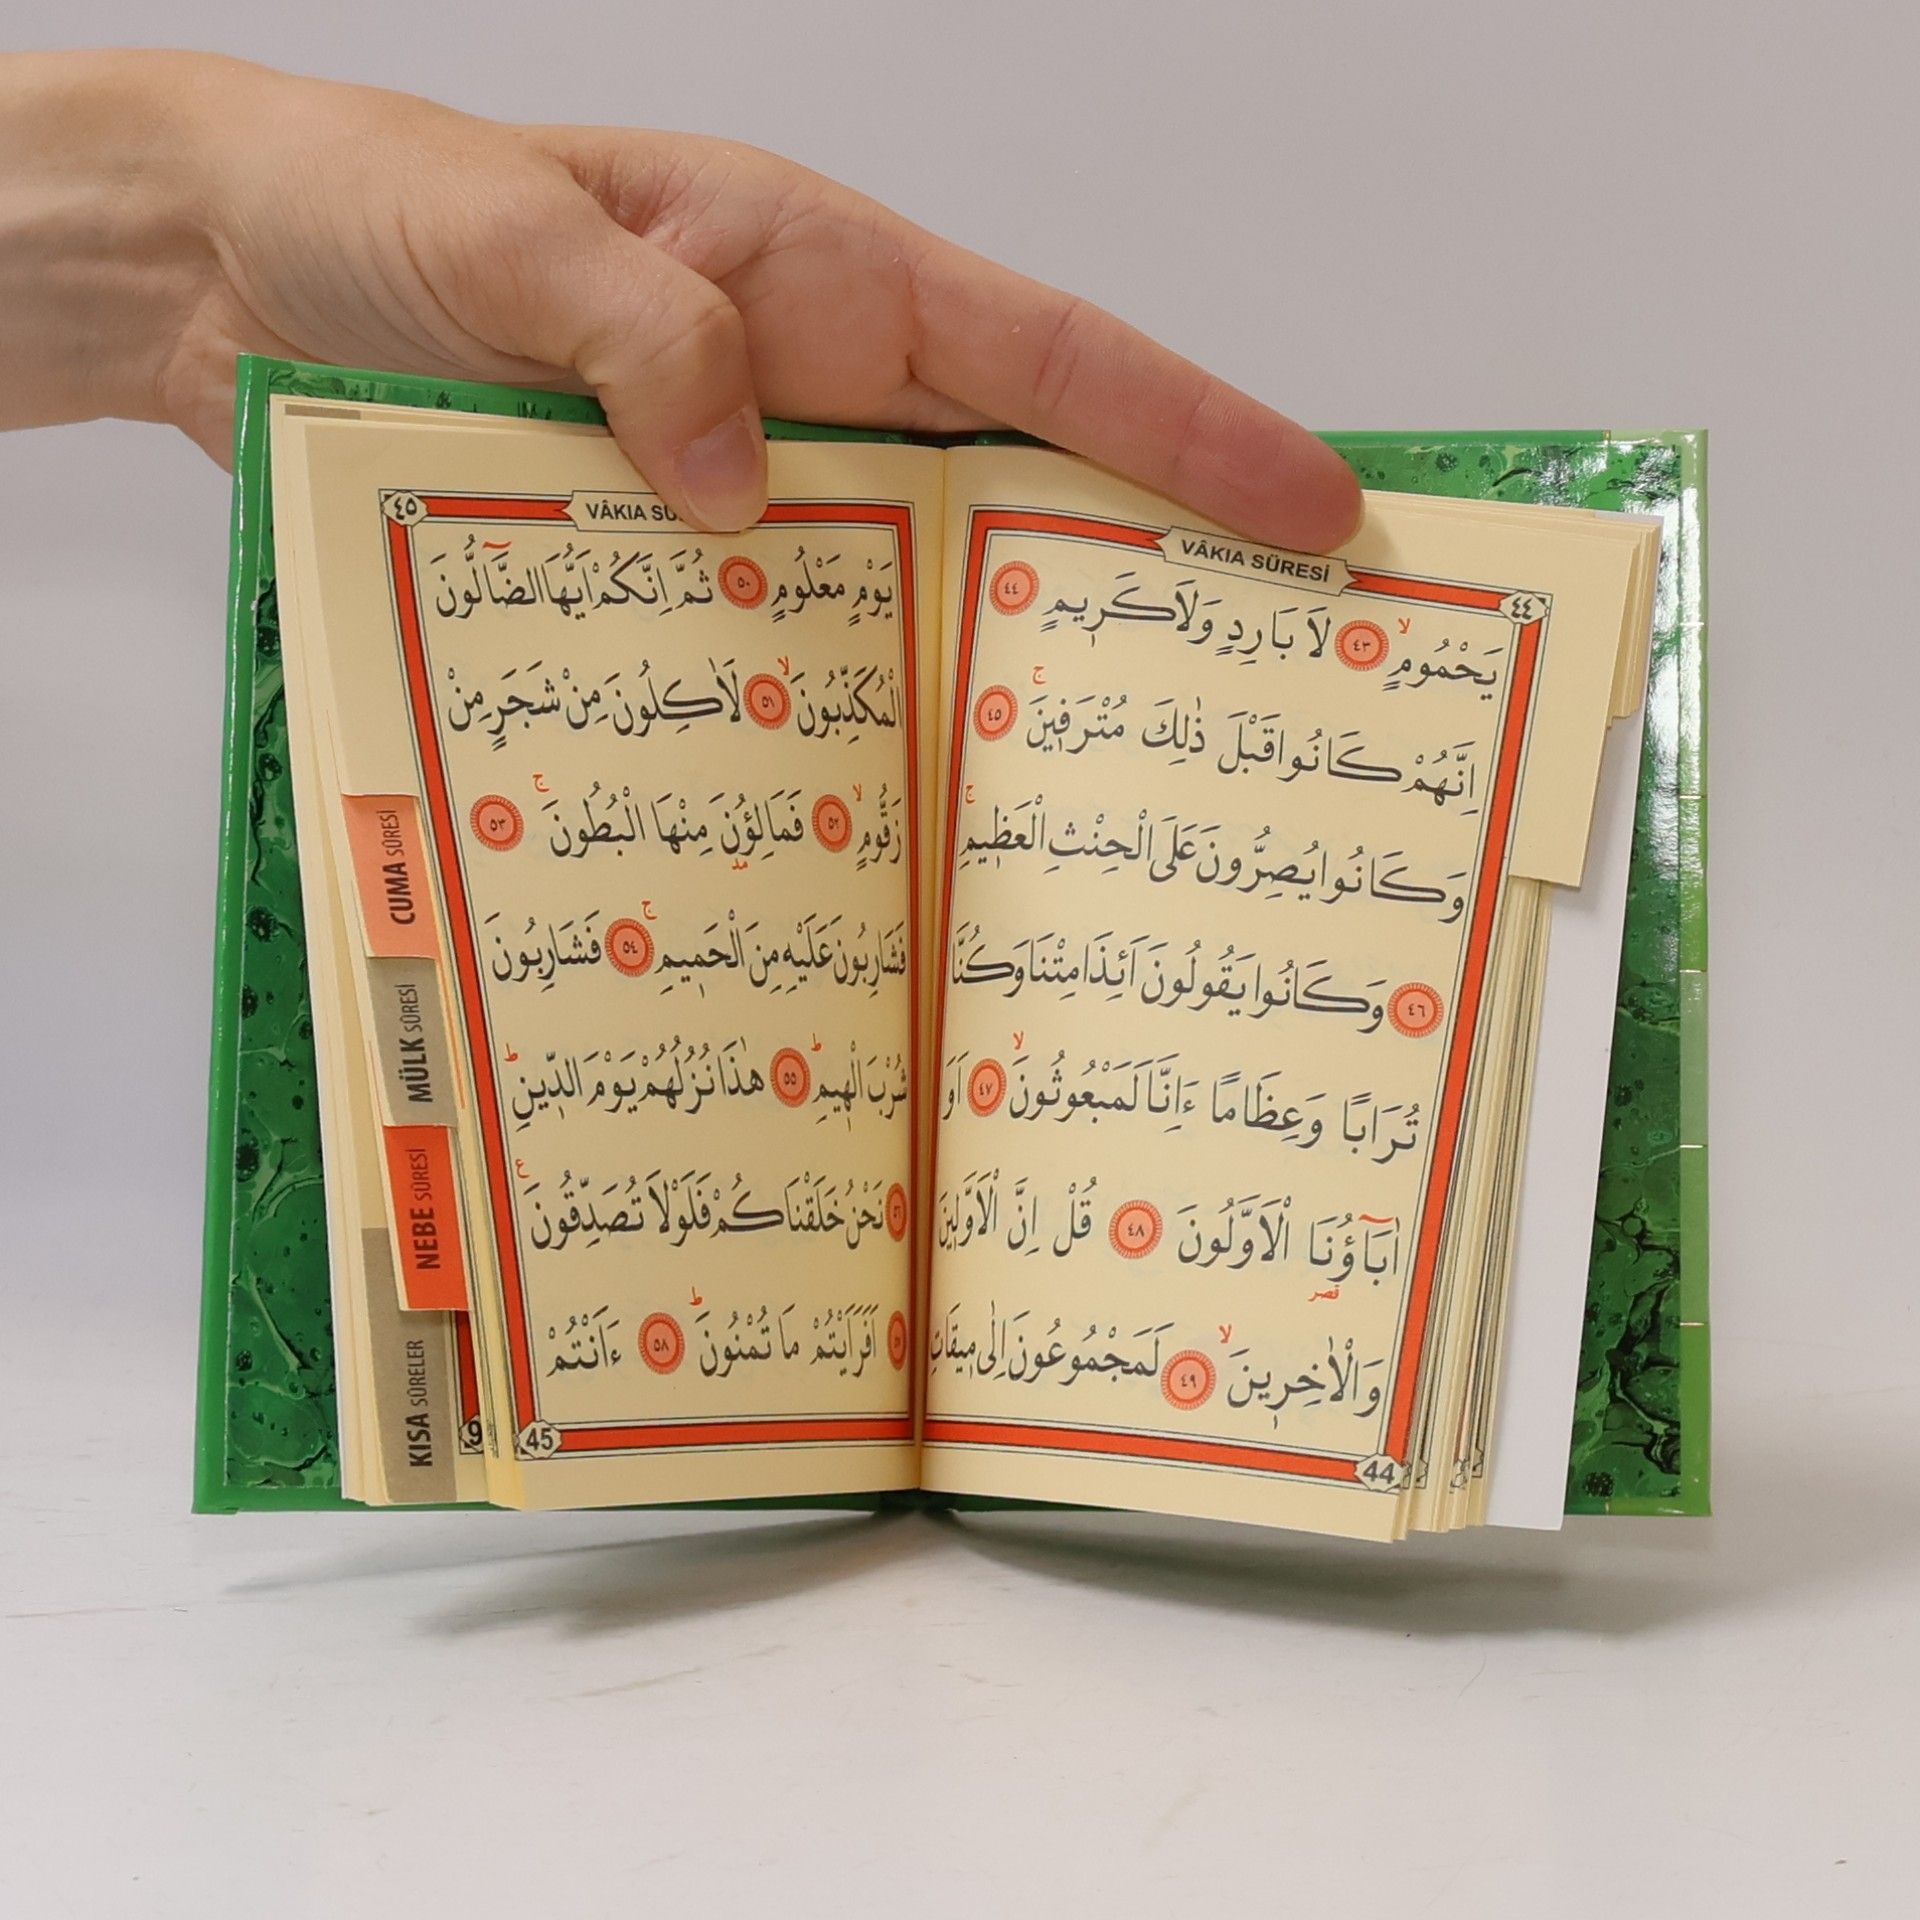 VÂKIA SÛRESİ
٤٤
يَحْمُومٍۙ ﴿٤٣﴾ لَا بَارِدٍ وَلَا كَر۪يمٍ ﴿٤٤﴾
اِنَّهُمْ كَانُوا قَبْلَ ذٰلِكَ مُتْرَف۪ينَۚ ﴿٤٥﴾
وَكَانُوا يُصِرُّونَ عَلَى الْحِنْثِ الْعَظ۪يمِۚ
﴿٤٦﴾ وَكَانُوا يَقُولُونَ اَئِذَا مِتْنَا وَكُنَّا
تُرَابًا وَعِظَامًا ءَاِنَّا لَمَبْعُوثُونَۙ ﴿٤٧﴾ اَوَ
اٰبَٓاؤُ۬نَا الْاَوَّلُونَ ﴿٤٨﴾ قُلْ اِنَّ الْاَوَّل۪ينَ
قصر
وَالْاٰخِر۪ينَۙ ﴿٤٩﴾ لَمَجْمُوعُونَ اِلٰى م۪يقَاتِ
44
VÂKIA
٤٥
يَوْمٍ مَعْلُومٍ ﴿٥٠﴾ ثُمَّ اِنَّكُمْ اَيُّهَا الضَّٓالُّونَ
الْمُكَذِّبُونَۙ ﴿٥١﴾ لَاٰكِلُونَ مِنْ شَجَرٍ مِنْ
زَقُّومٍۙ ﴿٥٢﴾ فَمَالِؤُ۫نَ مِنْهَا الْبُطُونَۚ ﴿٥٣﴾
مد
فَشَارِبُونَ عَلَيْهِ مِنَ الْحَم۪يمِۚ ﴿٥٤﴾ فَشَارِبُونَ
شُرْبَ الْه۪يمِۜ ﴿٥٥﴾ هٰذَا نُزُلُهُمْ يَوْمَ الدّ۪ينِۜ
﴿٥٦﴾ نَحْنُ خَلَقْنَاكُمْ فَلَوْلَا تُصَدِّقُونَ ع
﴿٥٧﴾ اَفَرَاَيْتُمْ مَا تُمْنُونَۜ ﴿٥٨﴾ ءَاَنْتُمْ
45
CUMA SÛRESİ
MÜLK SÛRESİ
NEBE SÛRESİ
KISA SÛRELER
9